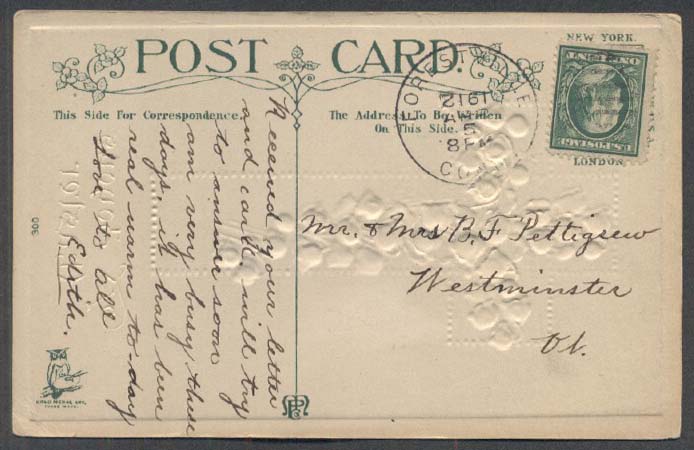 POST CARD.
This Side For Correspondence.
The Address To Be Written
On This Side.
NEW YORK.
LONDON
FOREST
1912
8 PM
U.S. POSTAGE
ONE CENT
Received your letter
and card will try
to answer soon
am very busy these
days, it has been
real warm to-day
Love to all
Edith.
Mr. & Mrs B. F. Pettigrew
Westminster
Vt.
300
TRADE MARK.